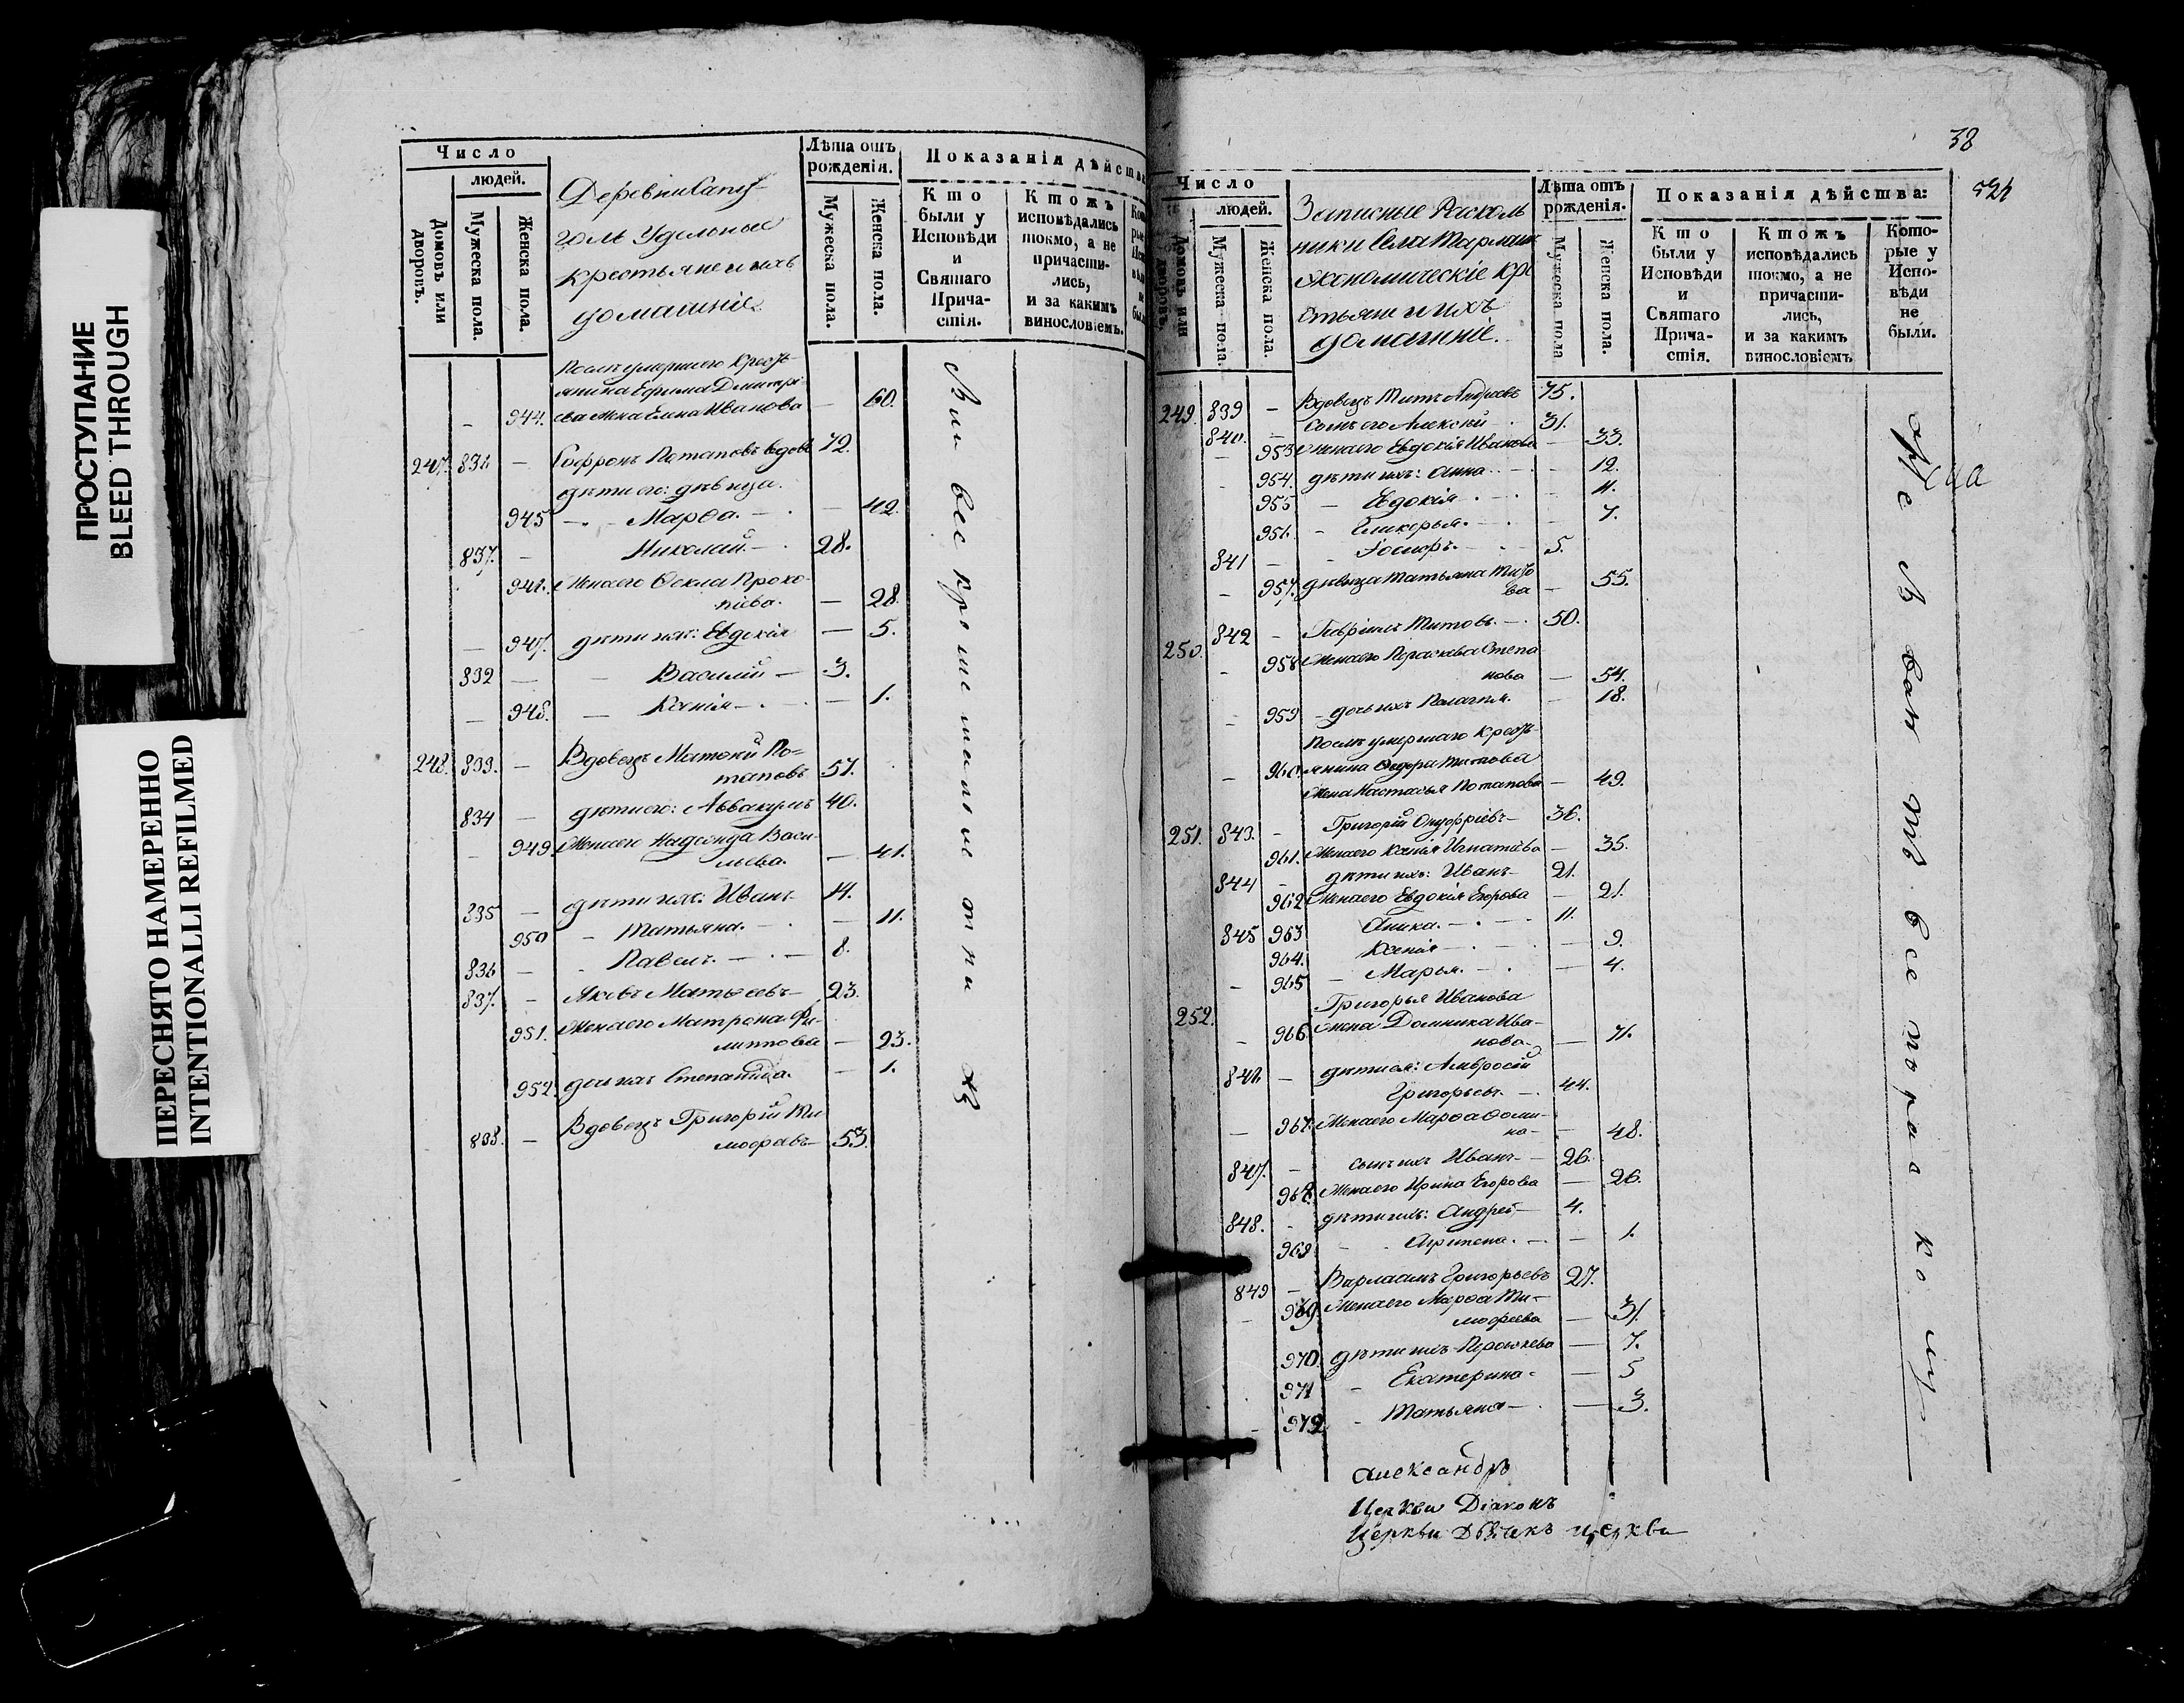 ПРОСТУПАНИЕ
BLEED THROUGH
ПЕРЕСНЯТО НАМЕРЕННО
INTENTIONALLI REFILMED
Число
людей.
Домовъ или дворовъ.
Мужеска пола.
Женска пола.
Деревни
Удельные
крестьяне и ихъ
домашніе
Лѣта отъ рожденія.
Мужеска пола.
Женска пола.
Показанія дѣйства
Кто были у Исповѣди и Святаго Причастія.
Ктожъ исповѣдались токмо, а не причастились, и за какимъ винословіемъ.
Послѣ умершаго крестьянина Ефима Дмитріева
944. жена Елена Иванова — 60.
247. 831 — Софронъ Потаповъ вдовъ 72.
дѣти его: дѣвица
945 — Марѳа. — 42.
837. — Николай. — 28.
946. Жена его Ѳекла Прокопіева. — 28.
947. дѣти ихъ: Евдокія — 5.
832 — Василий — 3.
948. — Ксенія — 1.
248. 833. — Вдовецъ Матѳей Потаповъ 57.
834 — дѣти его: Аввакумъ 40.
949. Жена его Надежда Васильева. — 41.
835 — дѣти ихъ: Иванъ 14.
950 — Татьяна. — 11.
836 — Павелъ. — 8.
837. — Яковъ Матѳеевъ 23.
951. Жена его Матрона Филиппова — 23.
952. дочь ихъ Степанида. — 1.
838. — Вдовецъ Григорій 53.
38
Число
людей.
Домовъ или дворовъ.
Мужеска пола.
Женска пола.
Записные Расколь
ники Села
Экономическіе кре
стьяне и ихъ
домашніе.
Лѣта отъ рожденія.
Мужеска пола
Женска пола.
Показанія дѣйства:
Кто были у Исповѣди и Святаго Причастія.
Ктожъ исповѣдались токмо, а не причастились, и за какимъ винословіемъ
Которые у Исповѣди не были.
249. 839 — Вдовецъ Титъ Андреевъ 75.
840. — сынъ его Алексей 31.
953 Жена его Евдокія Иванова — 33.
954. дѣти ихъ: Анна — 12.
955 — Евдокія — 11.
956. — Гликерья. — 7.
841 — 5.
957. дѣвица Татьяна Титова — 55.
250. 842 — Гавріилъ Титовъ. — 50.
958 Жена его Параскева Степанова — 54.
959 — дочь ихъ Пелагия. — 18.
Послѣ умершаго крестьянина
960 Титова
жена Настасья Потапова — 49.
251. 843. — Григорій Онуфріевъ — 36.
961. Жена его Ксенія Игнатіева — 35.
844 — дѣти ихъ: Иванъ — 21.
962 Жена его Евдокія Егорова — 21.
845 963 Аника. — 11.
964. Ксенія — 9.
965 — Марья. — 4.
252. Григорья Иванова
966 жена Домника Иванова — 71.
846 — дѣти ея: Амвросій Григорьевъ. — 44.
967. Жена его Марѳа Ѳомина — 48.
847. — сынъ ихъ Иванъ — 26.
968. Жена его Ирина Егорова — 26.
848. — дѣти ихъ: Андрей — 4.
969 — Агрипена. — 1.
849 — Варлаамъ Григорьевъ 27.
969. Жена его Марѳа Тимофеева — 31.
970. дѣти ихъ Параскева — 7.
971 — Екатерина — 5
972 — Татьяна — 3.
Александръ
Церкви Діаконъ
Церкви Дьячекъ церкви